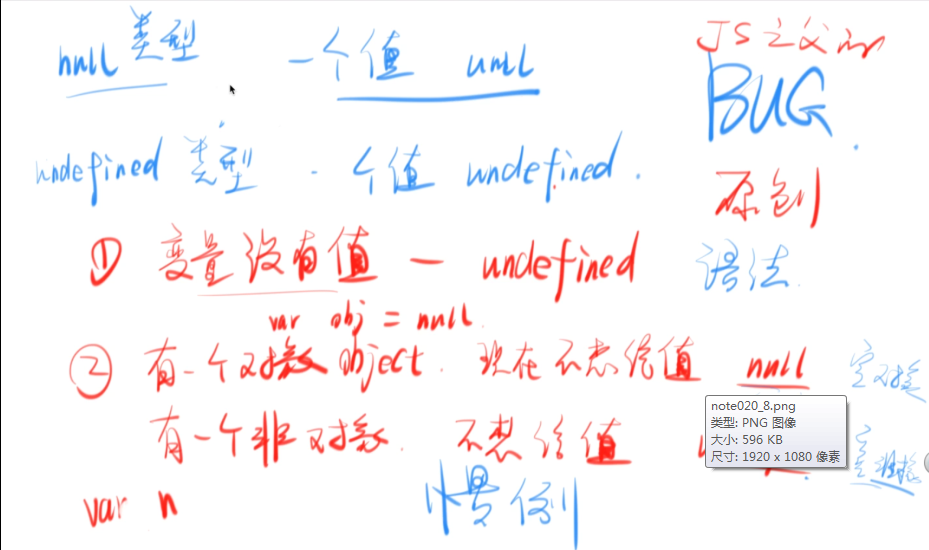 null 类型 一个值 null
JS之父的
BUG
undefined 类型 - 个值 undefined.
原创
① 变量没有值 — undefined
语法
var obj = null
② 有一个对象 object. 现在不想给值 null 空对象
有一个非对象. 不想给值 u
note020_8.png
类型: PNG 图像
大小: 596 KB
尺寸: 1920 x 1080 像素
var n
惯例